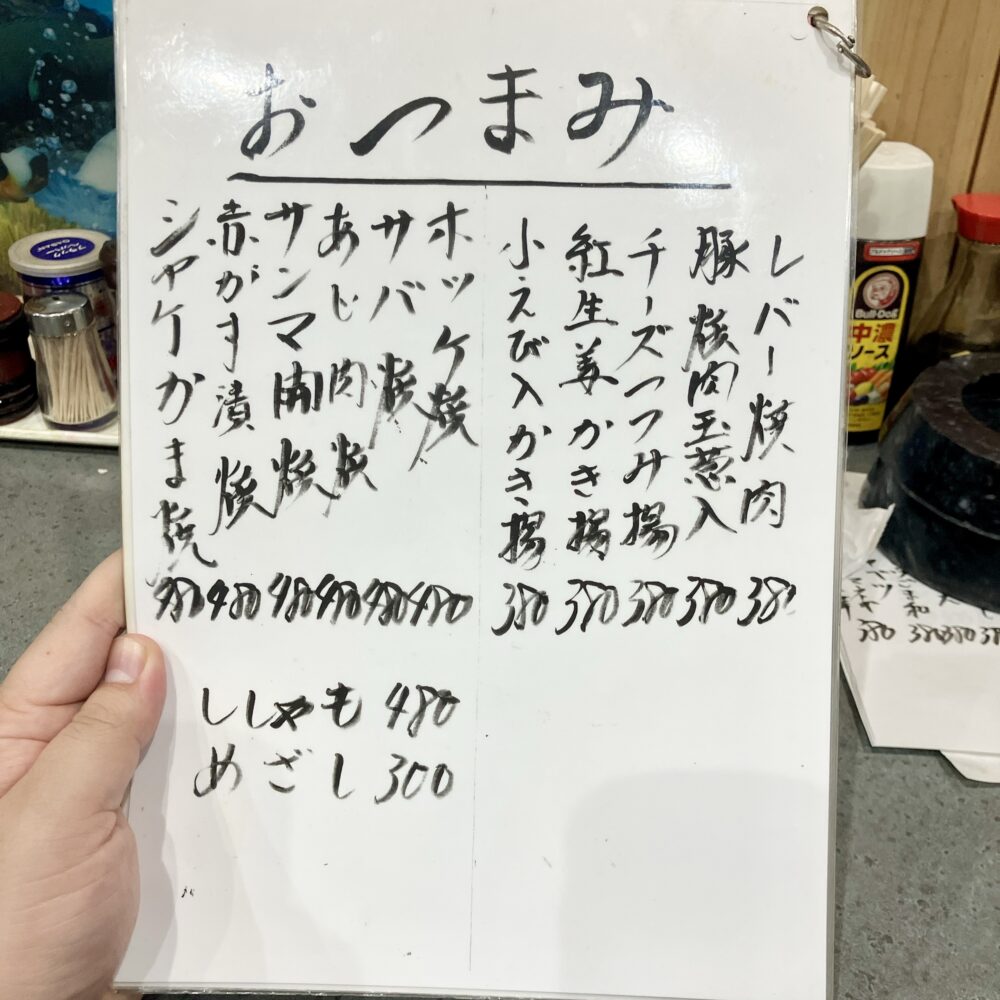 おつまみ
レバー焼肉 380
豚焼肉玉葱入 380
チーズつつみ揚 380
紅生姜かき揚 380
小えび入かき揚 380
ホッケ焼 480
サバ焼 480
あじ肉焼 480
サンマ開焼 480
赤がす漬焼 480
シャケかま焼 480
ししゃも 480
めざし 300
Bull-Dog
中濃
ソース
380
380
380